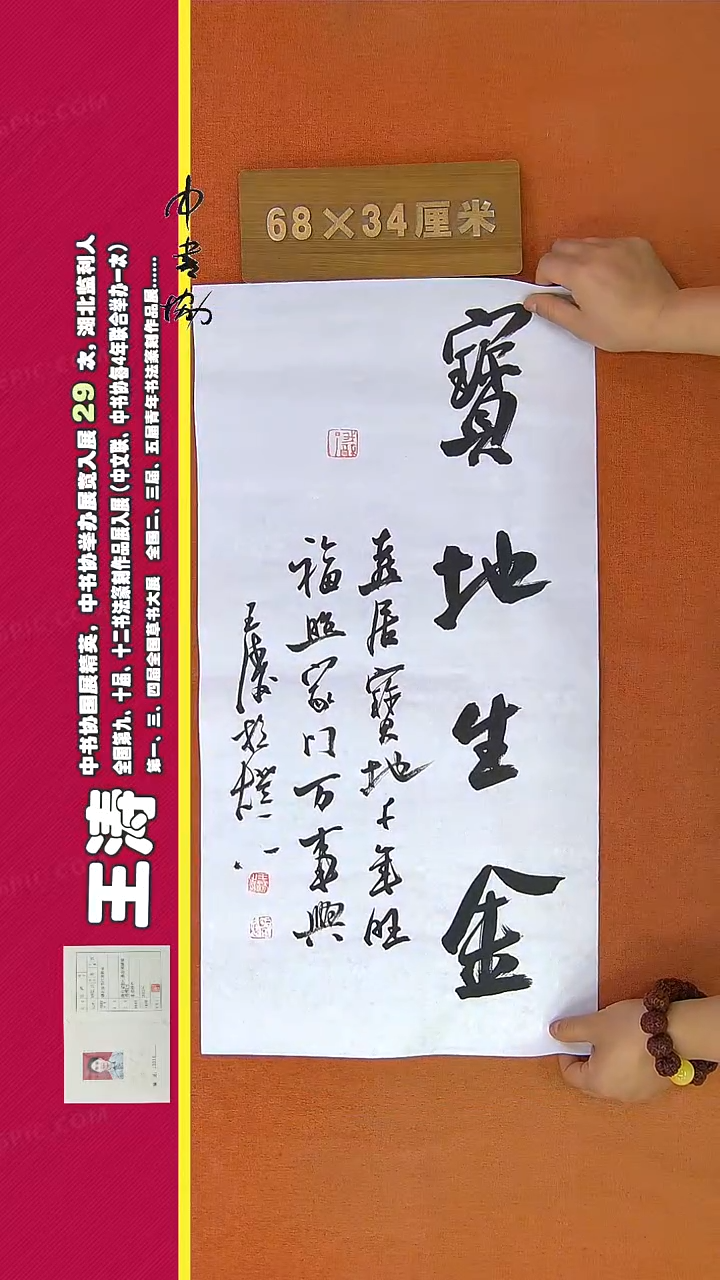 中书协
68×34厘米
寶地生金
喜居寶地千年旺
福照家门万事興
王涛
中书协国展精英，中书协举办展览入展 29 次，湖北监利人
全国第九、十届、十二书法篆刻作品展入展（中文联、中书协每4年联合举办一次）
第一、三、四届全国草书大展 全国二、三届、五届青年书法篆刻作品展......